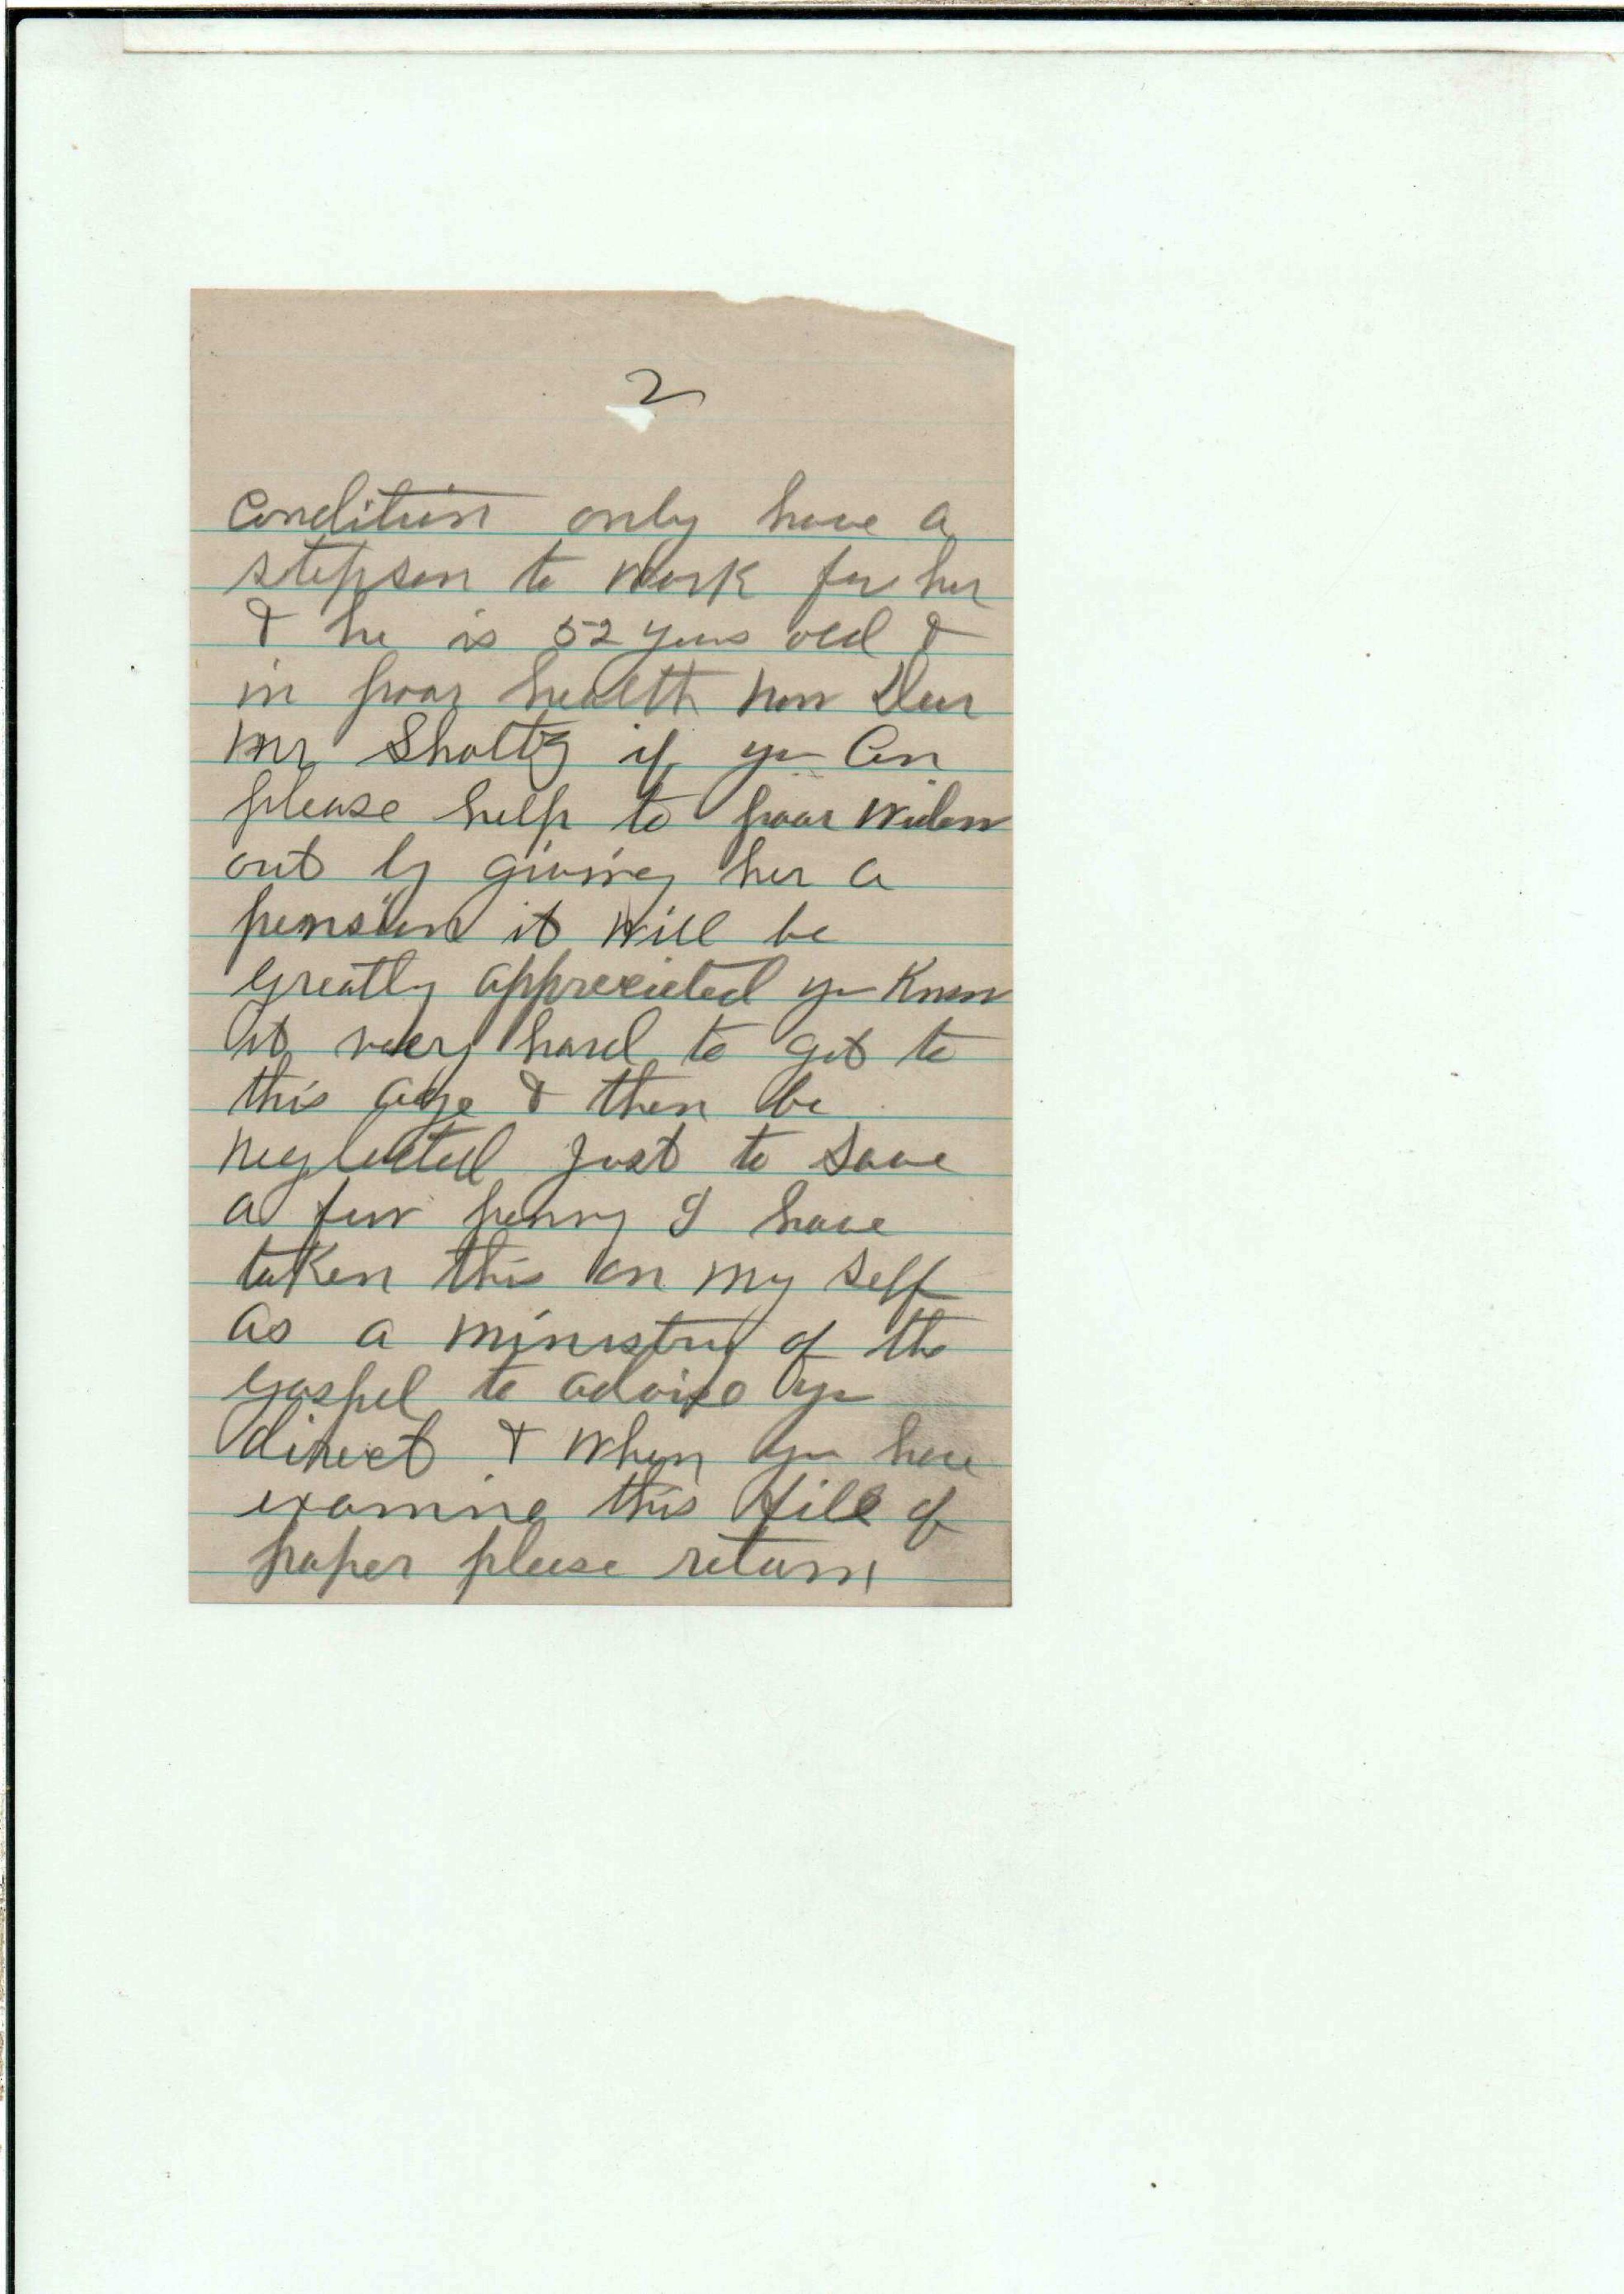 2
Condition only have a
stepson to work for her
& he is 52 years old &
in poor health now Dear
Mr Sholtz if you Can
please help to poor widow
out by giving her a
pension it will be
greatly apprecieted you Know
it very hard to get to
this age & then be
neglected Just to save
a few penny I have
taken this on my self
as a ministry of the
gospel to advise you
direct & when you have
examine this file of
paper please return